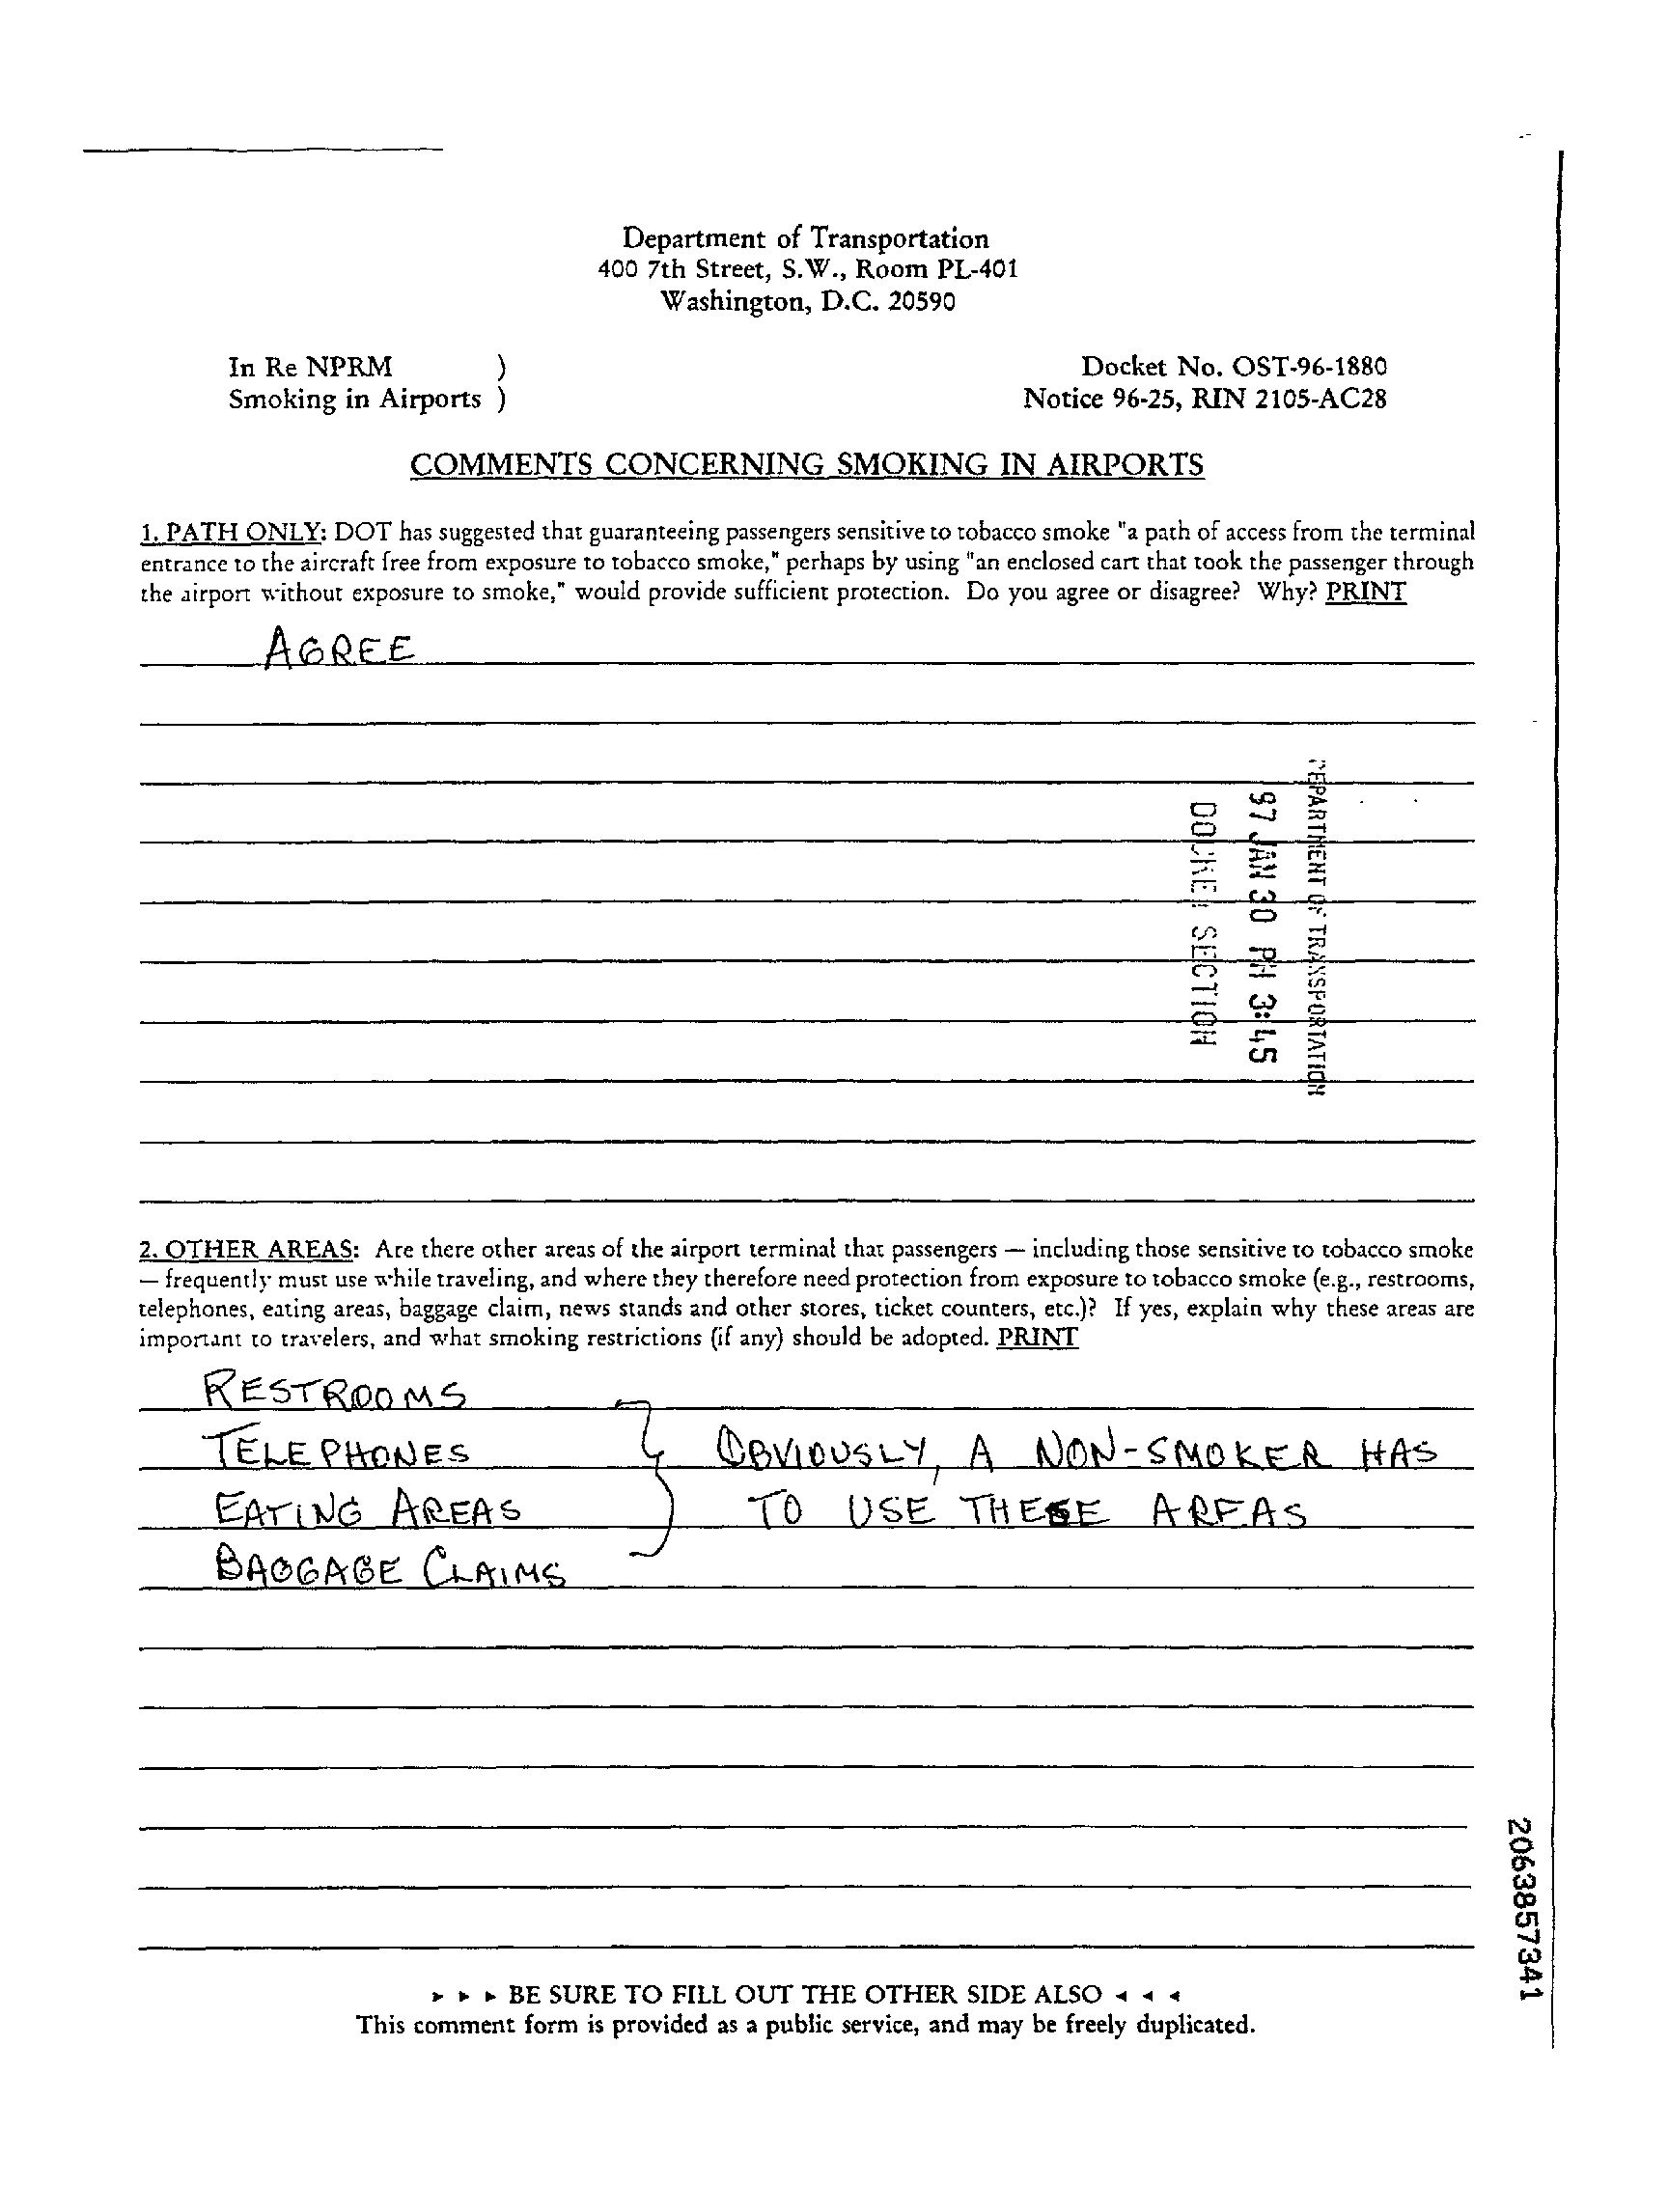 Department of Transportation
400 7th Street, S.W., Room PL-401
Washington, D.C. 20590
In Re NPRM )
Smoking in Airports )
Docket No. OST-96-1880
Notice 96-25, RIN 2105-AC28
COMMENTS CONCERNING SMOKING IN AIRPORTS
1. PATH ONLY: DOT has suggested that guaranteeing passengers sensitive to tobacco smoke "a path of access from the terminal
entrance to the aircraft free from exposure to tobacco smoke," perhaps by using "an enclosed cart that took the passenger through
the airport without exposure to smoke," would provide sufficient protection. Do you agree or disagree? Why? PRINT
AGREE
DEPARTMENT OF TRANSPORTATION
97 JAN 30 PM 3:45
DOCKET SECTION
2. OTHER AREAS: Are there other areas of the airport terminal that passengers — including those sensitive to tobacco smoke
— frequently must use while traveling, and where they therefore need protection from exposure to tobacco smoke (e.g., restrooms,
telephones, eating areas, baggage claim, news stands and other stores, ticket counters, etc.)? If yes, explain why these areas are
important to travelers, and what smoking restrictions (if any) should be adopted. PRINT
RESTROOMS
TELEPHONES
EATING AREAS
BAGGAGE CLAIMS
OBVIOUSLY, A NON-SMOKER HAS
TO USE THESE AREAS
► ► ► BE SURE TO FILL OUT THE OTHER SIDE ALSO ◄ ◄ ◄
This comment form is provided as a public service, and may be freely duplicated.
2063857341